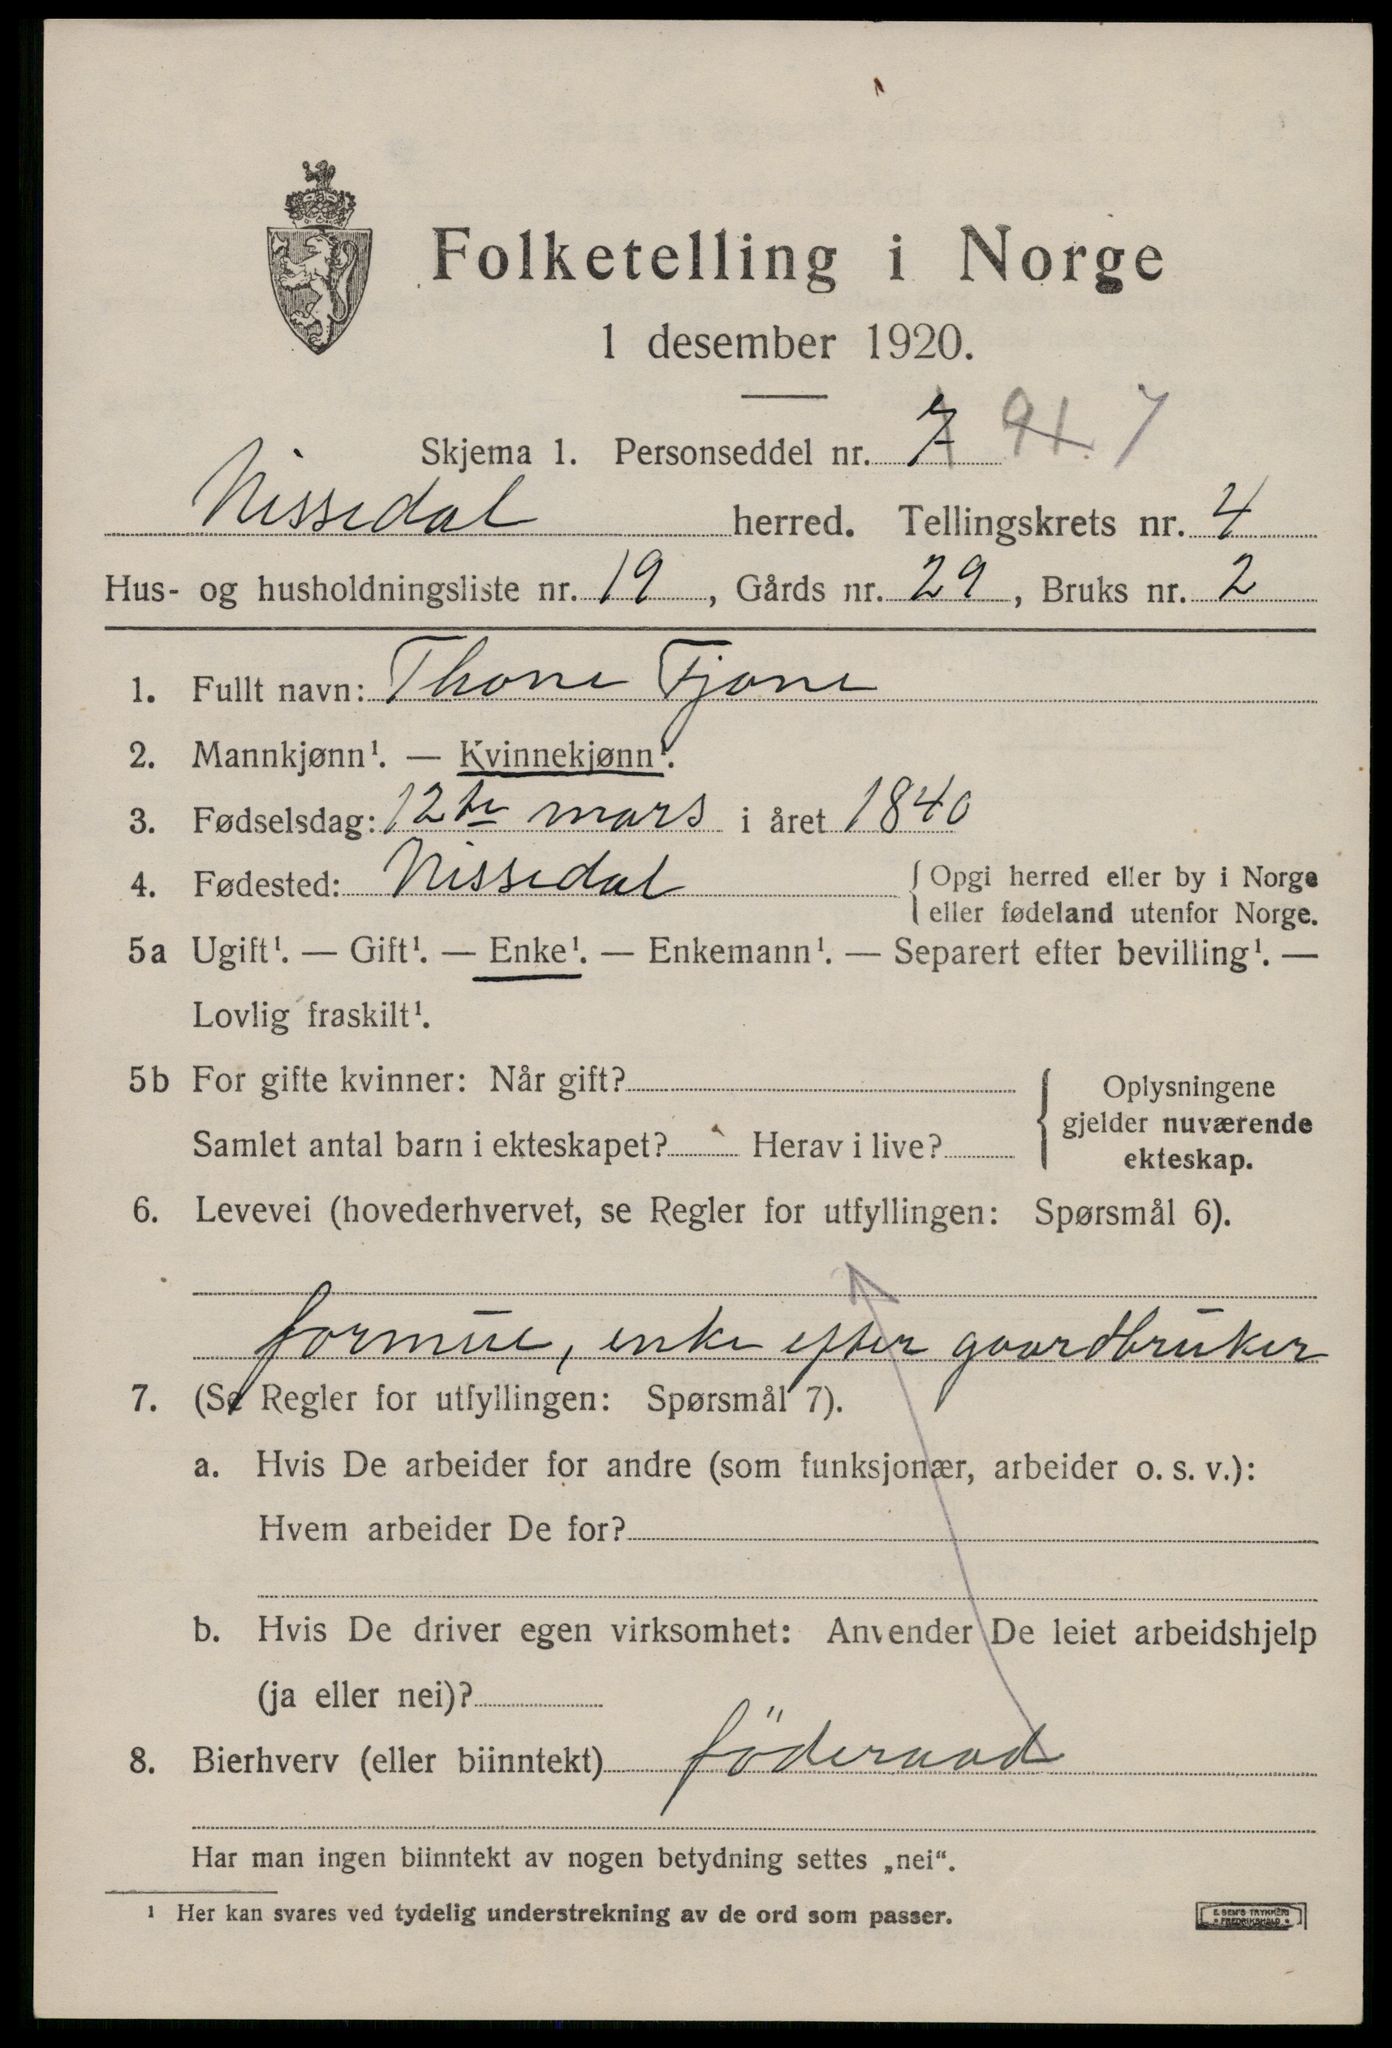 Folketelling i Norge
1 desember 1920.
Skjema 1. Personseddel nr. 7 94. 7
Nissedal herred. Tellingskrets nr. 4
Hus- og husholdningsliste nr. 19, Gårds nr. 29, Bruks nr. 2
1. Fullt navn: Thone Fjone
2. Mannkjønn¹. — Kvinnekjønn¹.
3. Fødselsdag: 12te mars i året 1840
4. Fødested: Nissedal { Opgi herred eller by i Norge
eller fødeland utenfor Norge.
5a Ugift¹. — Gift¹. — Enke¹. — Enkemann¹. — Separert efter bevilling¹. —
Lovlig fraskilt¹.
5b For gifte kvinner: Når gift?
Samlet antal barn i ekteskapet? Herav i live?
{ Oplysningene
gjelder nuværende
ekteskap.
6. Levevei (hovederhvervet, se Regler for utfyllingen: Spørsmål 6).
formue, enke efter gaardbruker
7. (Se Regler for utfyllingen: Spørsmål 7).
a. Hvis De arbeider for andre (som funksjonær, arbeider o. s. v.):
Hvem arbeider De for?
b. Hvis De driver egen virksomhet: Anvender De leiet arbeidshjelp
(ja eller nei)?
8. Bierhverv (eller biinntekt) föderaad
Har man ingen biinntekt av nogen betydning settes „nei“.
¹ Her kan svares ved tydelig understrekning av de ord som passer.
E. SEM'S TRYKKERI
FREDRIKSHALD